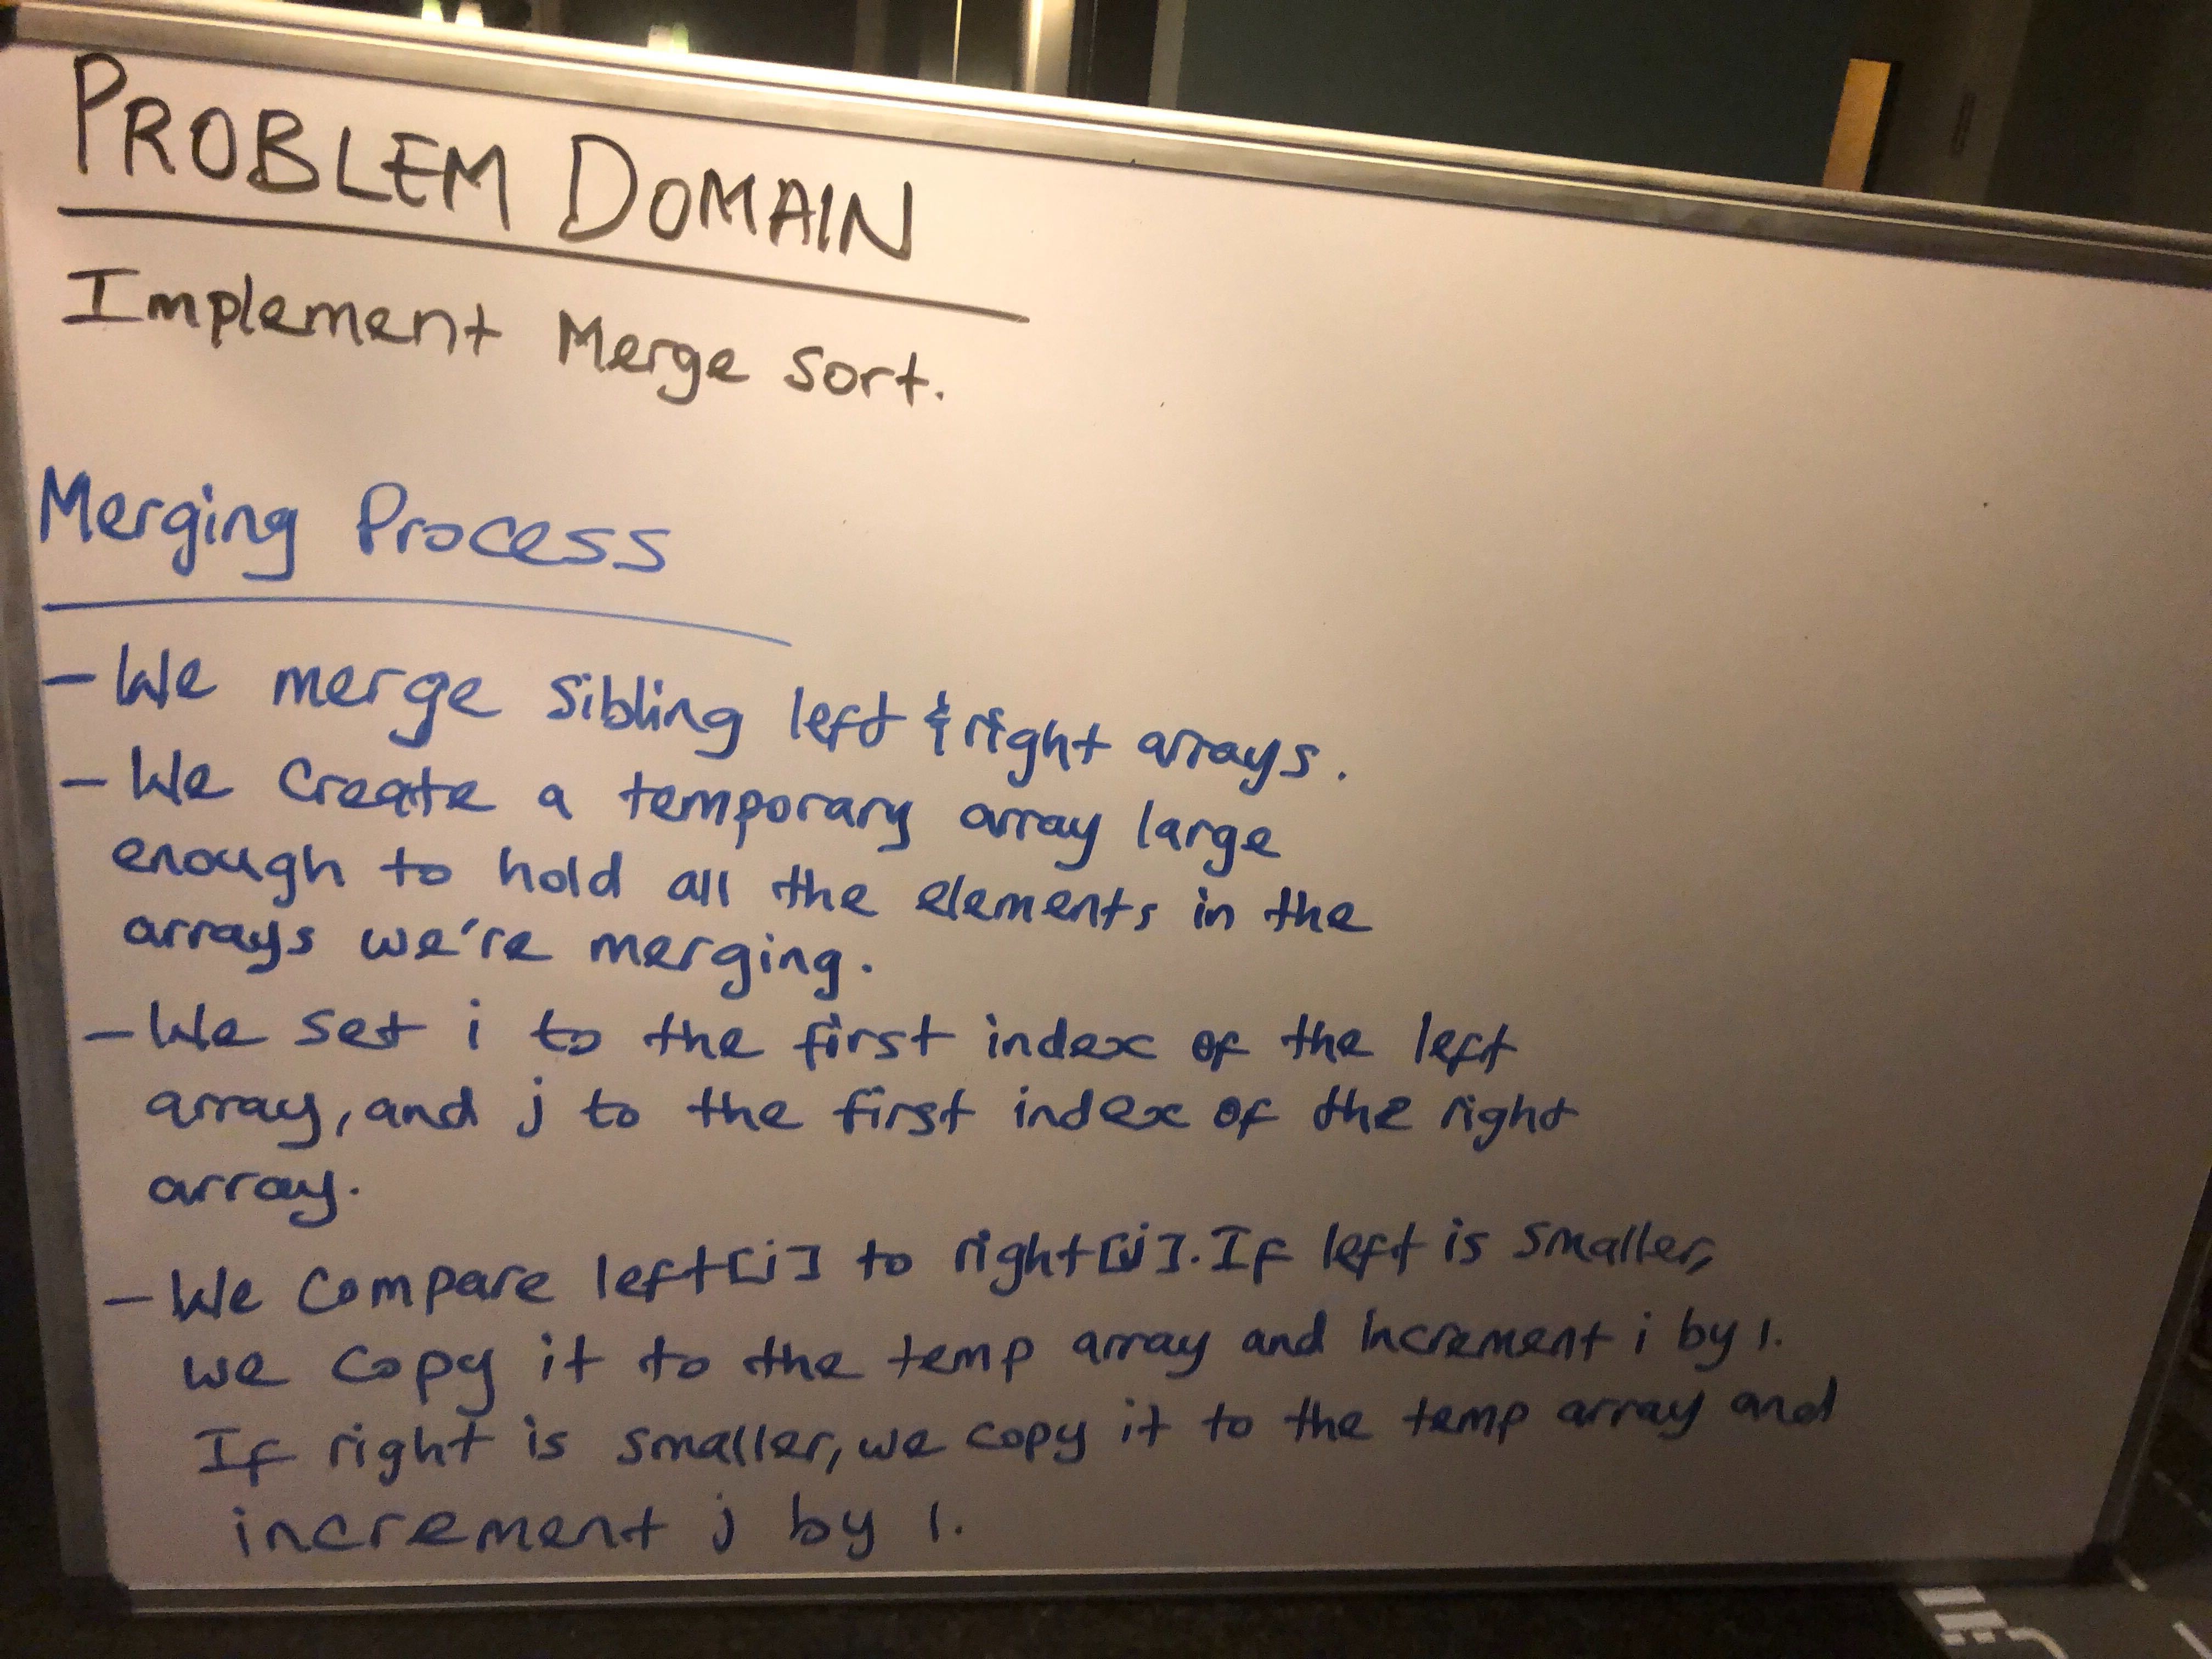 PROBLEM DOMAIN
Implement Merge Sort.
Merging Process
- We merge sibling left & right arrays.
- We create a temporary array large
enough to hold all the elements in the
arrays we're merging.
- We set i to the first index of the left
array, and j to the first index of the right
array.
- We compare left[i] to right[j]. If left is smaller,
we copy it to the temp array and increment i by 1.
If right is smaller, we copy it to the temp array and
increment j by 1.